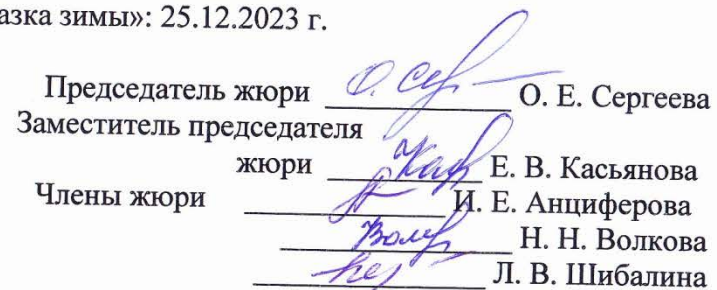 азка зимы»: 25.12.2023 г.
Председатель жюри О. Е. Сергеева
Заместитель председателя
жюри Е. В. Касьянова
Члены жюри И. Е. Анциферова
Н. Н. Волкова
Л. В. Шибалина